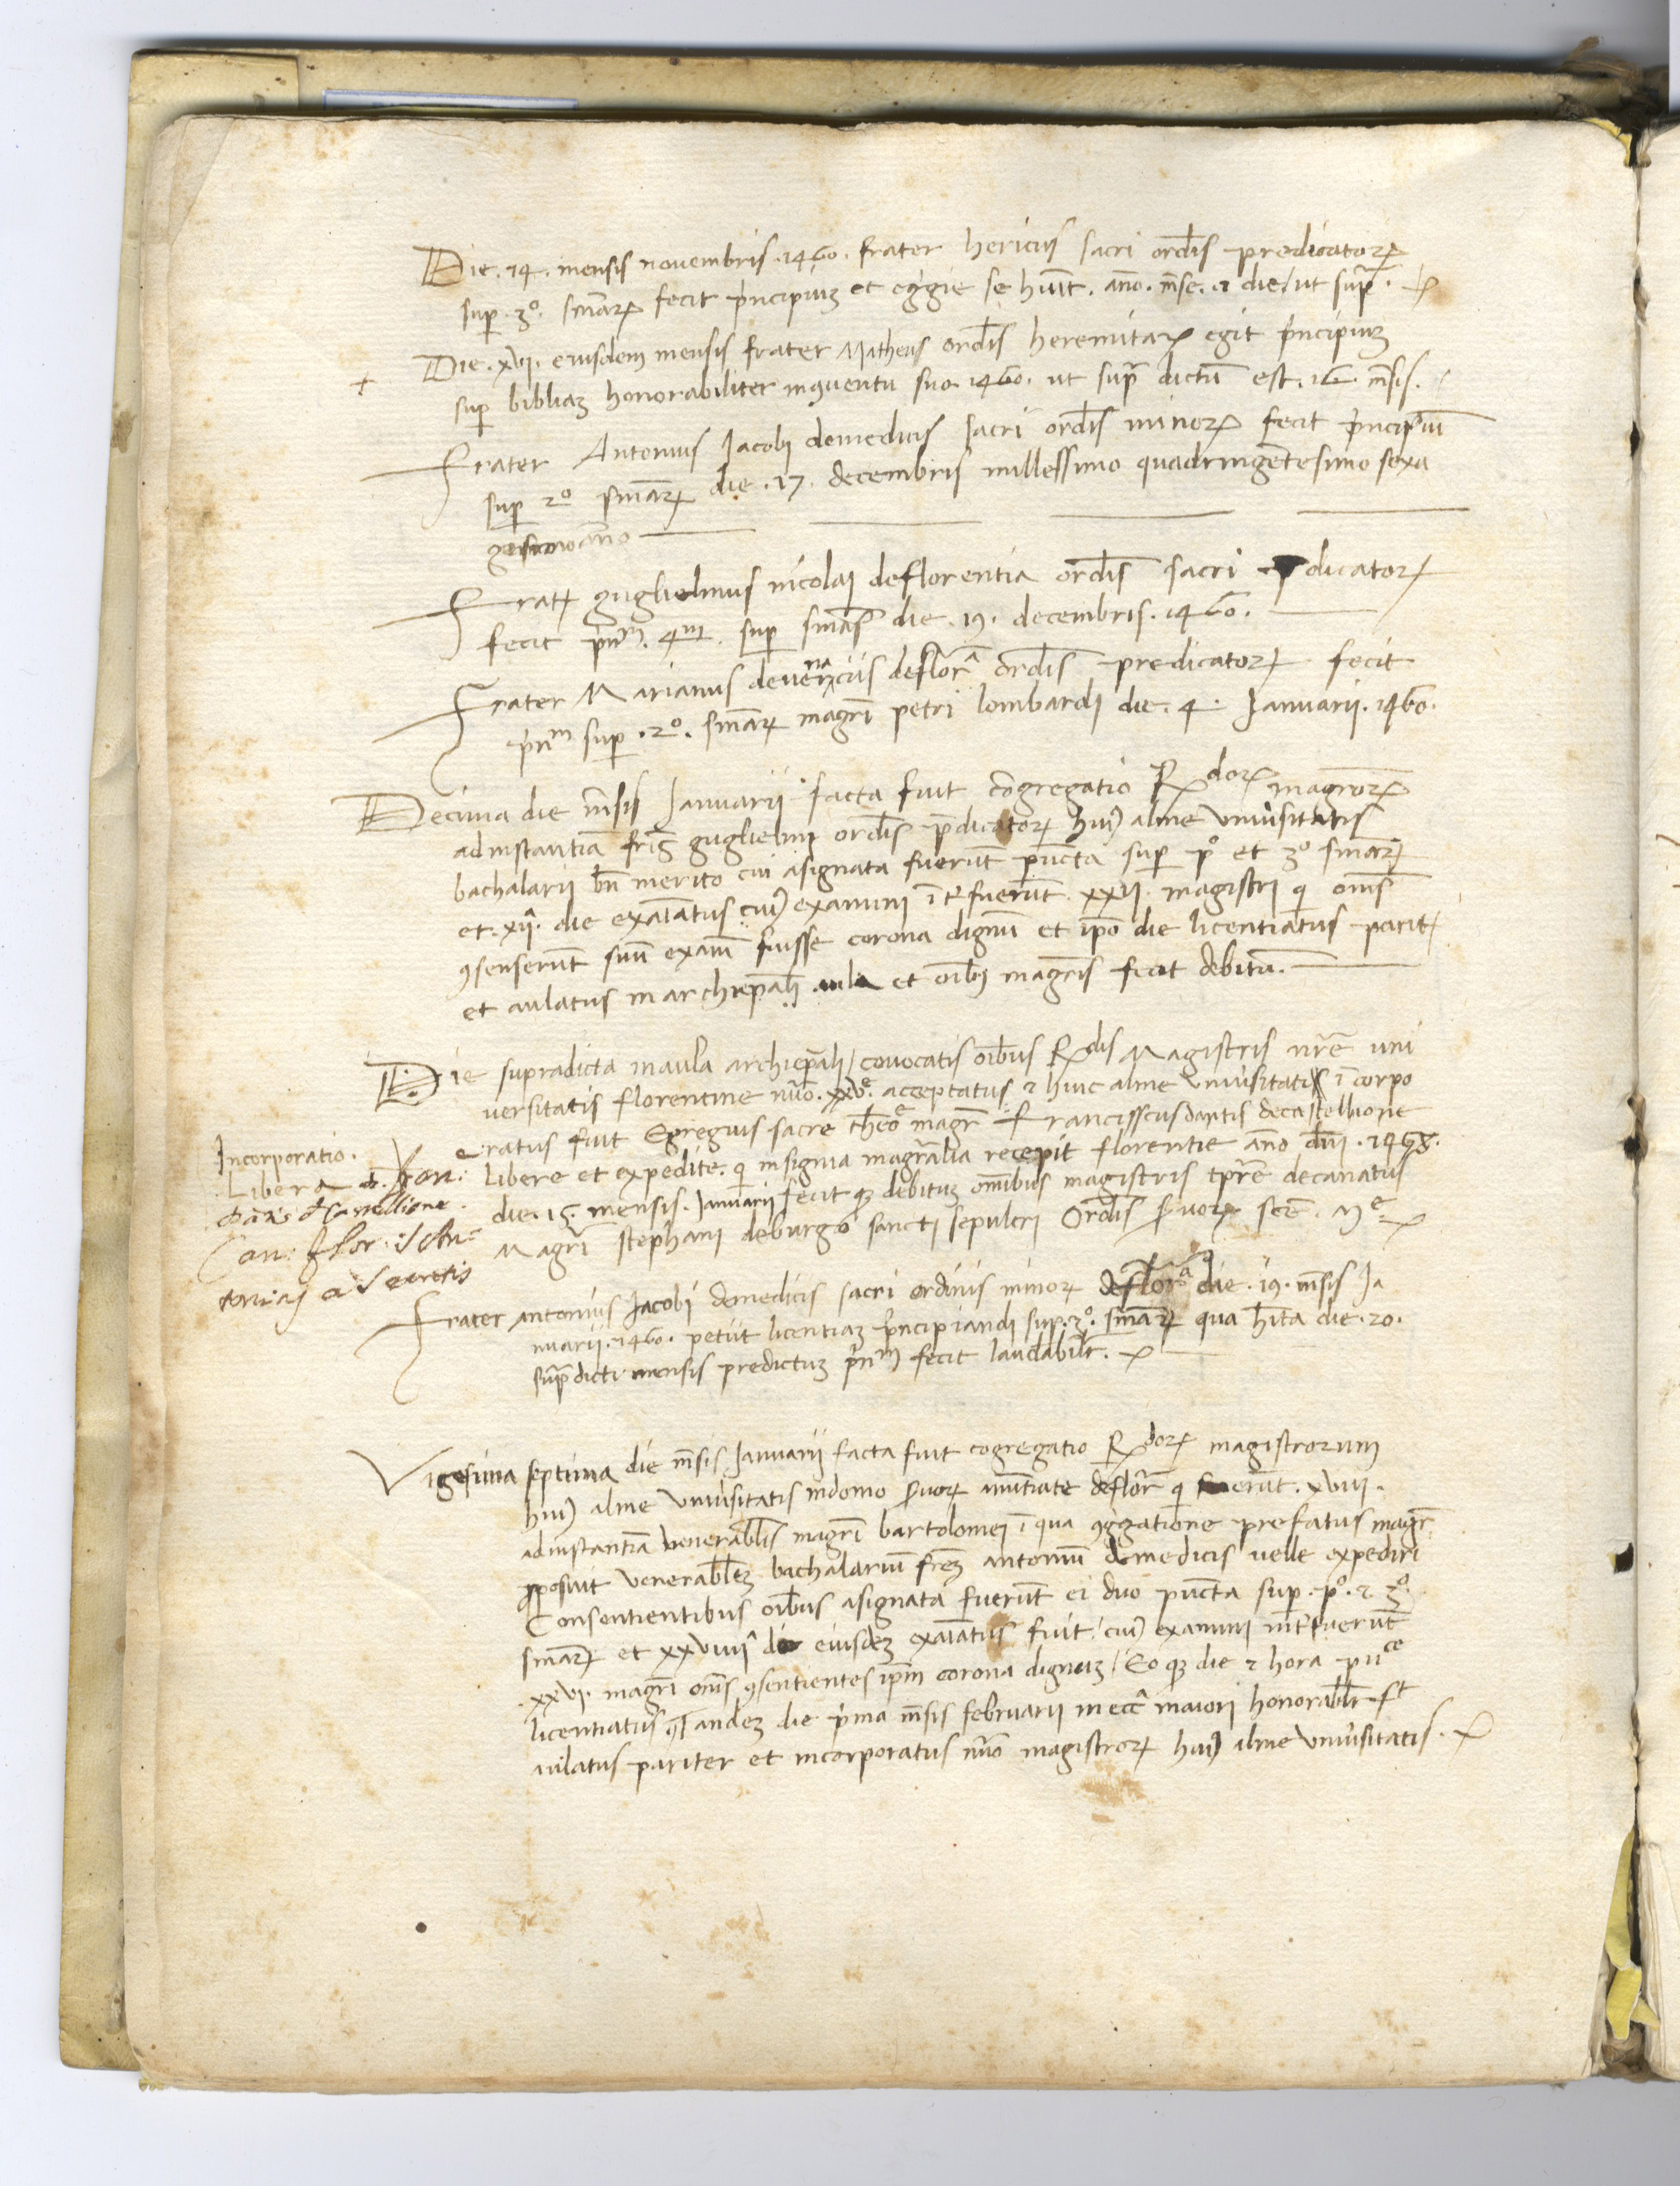 Die. 14. mensis novembris. 1460. frater hericus sacri ordīs predicatorꝝ
sup. 3º. smāꝝ fecit pncipiuꝫ et egᵉgie se huīt. āno. mēse. ⁊ die / ut supᵃ.
Die. xvj. eiusdem mensis frater Matheus ordīs heremitaꝝ egit pncipiuꝫ
sup bibliaꝫ honorabiliter inꝯventu suo. 1460. ut supᵃ dictū est. 16. mēsis.
Frater Antonius Jacobi demedicis sacri ordīs minorꝝ fecit pncipiū
sup 2º smāꝝ die. 17. decembris millessimo quadringētesimo sexa
gesimo anno
Frat guglielmus nicolaj deflorentia ordīs sacri pdicatorꝝ
fecit pnᵐ. 4ᵐ. sup smās die. 19. decembris. 1460.
Frater Marianus devernacijs deflorᵃ ordīs predicatorꝝ fecit
pnᵐ sup. 2º. smāꝝ magrī petri lombardj die. 4. Januarii. 1460.
Decima die mēsis Januarii facta fuit cōgregatio Rᵈᵒʳꝝ magrorꝝ
adinstantiā frīs guglielmj ordīs pdicatorꝝ huiꝰ alme universitatis
bachalarii bn̄ merito cui asignata fuerūt pūcta sup pº et 3º smāꝝ
et. xijᵃ. die exaīatus cuiꝰ examini īt̄fuerūt. xxvj. magistri q omīs
ꝯsenserūt suū exam̄ fuisse corona dignū et ipō die licentiatus parit
et aulatus in archiepāli aula et oībꝰ magrīs fecit debitū.
Die supradicta inaula archiepāli / cōvocatis oībus Rᵈⁱˢ Magistris nrē uni
versitatis florentine nūo. xxvᵉ. acceptatus ⁊ huic alme universitati īcorpo
ratus fuit Egregius sacre theoᵉ magr̄ Francisscus dantis decastellione
libere et expedite. q insignia magrālia recepit florentie āno dnī. 1458.
die. 15 mensis. Januarii fecit qꝫ debituꝫ omnibus magistris tprē decanatus
Magrī stephani deburgo sancti sepulcri Ordīs servorꝝ scē. Mᵉ
Incorporatio.
Libera
Can: flor:
a Secretis
Frater antonius Jacobi demedicis sacri ordinis minorꝝ deflorᵃ die. 19. mēsis Ja
nuarii. 1460. petiit licentiaꝫ pncipiandi sup. 3º. smāꝝ qua hīta die. 20.
supᵃdicti mensis predictuꝫ pnᵐ fecit laudabilr̄.
Vigesima septima die mēsis Januarii facta fuit cōgregatio Rᵈᵒʳꝝ magistrorum
huiꝰ alme universitatis indomo servorꝝ anūtiate deflorᵃ q fuerūt. xviii.
adinstantiā venerabilis magrī bartolomej ī qua ꝯggᵃtione prefatus magr̄
proposuit venerabileꝫ bachalariū frēꝫ antoniū demedicis velle expediri
Consentientibus oībus asignata fuerūt ei duo pūcta sup. pº. ⁊ 3º.
smāꝝ et xxviiijᵃ die eiusdeꝫ exaīatus fuit / cuiꝰ examini īnt̄fuerūt
. xxvj. magrī omīs ꝯsentientes ipm̄ corona dignuꝫ / Eo qꝫ die ⁊ hora
licentiatus qtandeꝫ die pma mēsis februarii in eccᵃ maiori honorabilr̄
aulatus pariter et incorporatus nūo magistrorꝝ huiꝰ alme universitatis.